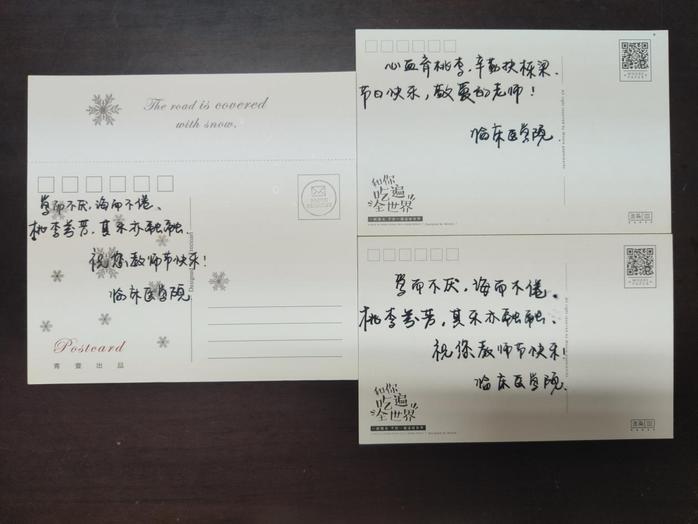 The road is covered
with snow.
学而不厌,诲而不倦、
桃李芬芳,其乐亦融融、
祝您教师节快乐!
临床医学院
Postcard
青壹出品
心血育桃李,辛勤扶栋梁、
节日快乐,敬爱的老师!
临床医学院、
和你
吃遍
全世界
学而不厌,诲而不倦、
桃李芬芳,其乐亦融融、
祝您教师节快乐!
临床医学院、
和你
吃遍
全世界